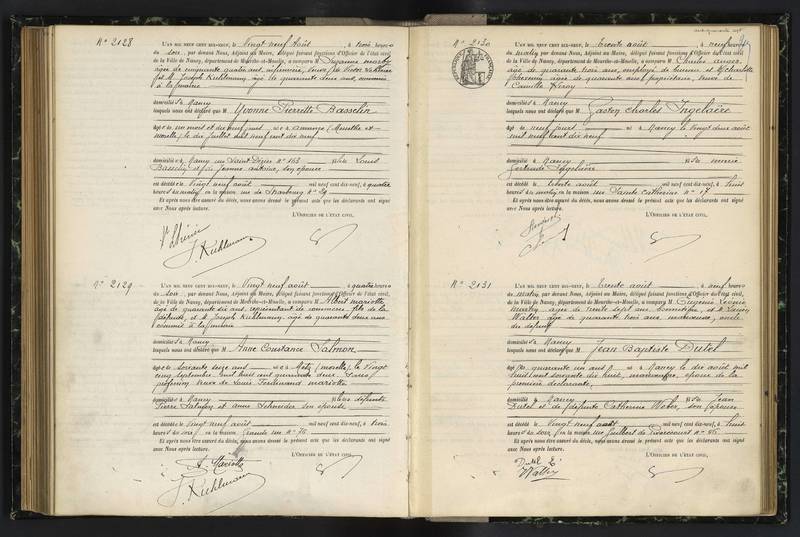 N° 2128
L'AN MIL NEUF CENT DIX-NEUF, le Vingt neuf Août, à trois heures
du soir, par devant Nous, Adjoint au Maire, délégué faisant fonctions d'Officier de l'état civil,
de la Ville de Nancy, département de Meurthe-et-Moselle, a comparu M Suzanne
âgée de cinquante quatre ans, infirmière,
et M. Joseph Kuhlmann, âgé de quarante deux ans, commis
à la mairie
domiciliés à Nancy
lesquels nous ont déclaré que Yvonne Pierrette Basselin
âgée de un mois et dix neuf jours née à (Meurthe et
Moselle) le dix Juillet mil neuf cent dix neuf
domiciliée à Nancy rue Saint Dizier n° 163 fille de Louis
Basselin et de Jeanne son épouse
est décédée le Vingt neuf août mil neuf cent dix-neuf, à quatre
heures du matin, en la maison rue de Strasbourg n° 29
Et après nous être assuré du décès, nous avons dressé le présent acte que les déclarants ont signé
avec Nous après lecture.
L'OFFICIER DE L'ÉTAT CIVIL,
J. Kuhlmann
N° 2129
L'AN MIL NEUF CENT DIX-NEUF, le Vingt neuf août, à quatre heures
du soir, par devant Nous, Adjoint au Maire, délégué faisant fonctions d'Officier de l'état civil,
de la Ville de Nancy, département de Meurthe-et-Moselle, a comparu M Albert Mariotte,
âgé de quarante six ans, représentant de commerce, fils de la
défunte, et M. Joseph Kuhlmann, âgé de quarante deux ans
commis à la mairie
domiciliés à Nancy
lesquels nous ont déclaré que Anne Constance Salmon
âgée de soixante seize ans née à Metz (Moselle) le Vingt
cinq septembre mil huit cent quarante deux, sans
profession veuve de Louis Ferdinand Mariotte
domiciliée à Nancy fille des défunts
Pierre Salmon et Anne Schneider son épouse
est décédée le Vingt neuf août mil neuf cent dix-neuf, à trois
heures du soir, en la maison n° 76
Et après nous être assuré du décès, nous avons dressé le présent acte que les déclarants ont signé
avec Nous après lecture.
L'OFFICIER DE L'ÉTAT CIVIL,
A. Mariotte
J. Kuhlmann
N° 2130
L'AN MIL NEUF CENT DIX-NEUF, le trente août, à neuf heures
du matin, par devant Nous, Adjoint au Maire, délégué faisant fonctions d'Officier de l'état civil,
de la Ville de Nancy, département de Meurthe-et-Moselle, a comparu M Charles
âgé de quarante trois ans, employé de bureau et Charlotte
âgée de quarante ans, propriétaire, veuve de
Camille
domiciliés à Nancy
lesquels nous ont déclaré que Gaston Charles Ingelaère
âgé de neuf jours né à Nancy le vingt deux août
mil neuf cent dix neuf
domicilié à Nancy fils de Marie
Gertrude Ingelaère
est décédé le trente août mil neuf cent dix-neuf, à huit
heures du matin, en la maison rue Sainte Catherine n° 17
Et après nous être assuré du décès, nous avons dressé le présent acte que les déclarants ont signé
avec Nous après lecture.
L'OFFICIER DE L'ÉTAT CIVIL,
N° 2131
L'AN MIL NEUF CENT DIX-NEUF, le trente août, à neuf heures
du matin, par devant Nous, Adjoint au Maire, délégué faisant fonctions d'Officier de l'état civil,
de la Ville de Nancy, département de Meurthe-et-Moselle, a comparu M Eugénie Léonie
âgée de trente sept ans, domestique, et M.
Walter âgé de quarante trois ans, manœuvre, oncle
du défunt
domiciliés à Nancy
lesquels nous ont déclaré que Jean Baptiste Dutel
âgé de quarante un ans né à Nancy le dix août mil
huit cent soixante dix huit, manœuvre, époux de la
première déclarante,
domicilié à Nancy fils de Jean
Dutel et de défunte Catherine Weber, son épouse
est décédé le Vingt neuf août mil neuf cent dix-neuf, à huit
heures du soir, en la maison rue Guilbert de Pixerécourt n° 86
Et après nous être assuré du décès, nous avons dressé le présent acte que les déclarants ont signé
avec Nous après lecture.
L'OFFICIER DE L'ÉTAT CIVIL,
Dutel E
Walter